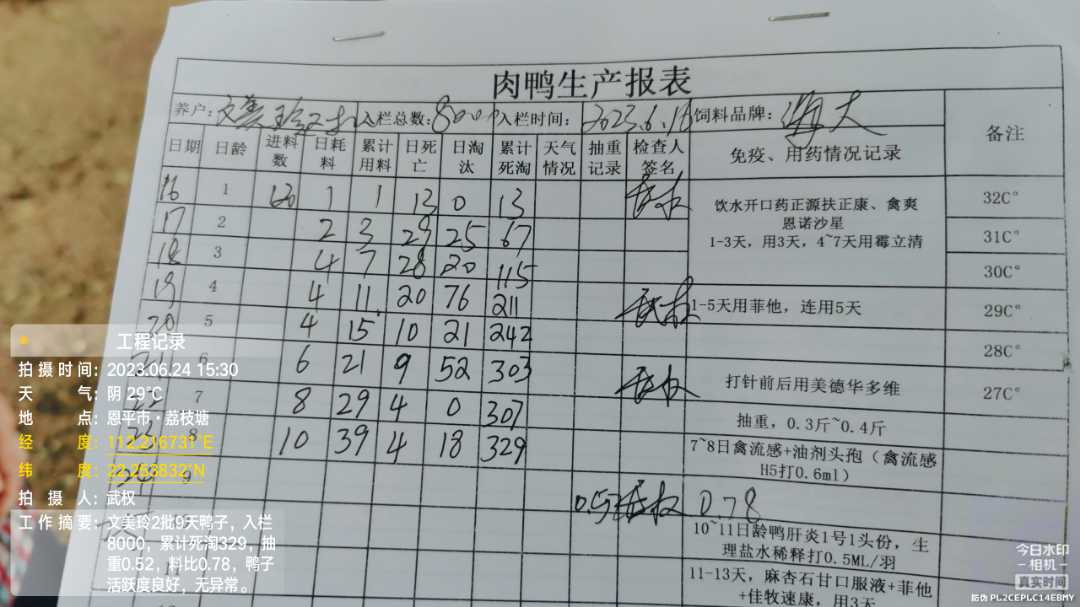 肉鸭生产报表
养户: 文美玲 入栏总数: 8000 入栏时间: 2023.6.16 饲料品牌: 海大 备注
日期 日龄 进料数 日耗料 累计用料 日死亡 日淘汰 累计死淘 天气情况 抽重记录 检查人签名 免疫、用药情况记录
16 1 130 1 1 13 0 13 武权 32C°
饮水开口药正源扶正康、禽爽
恩诺沙星
1-3天，用3天，4~7天用霉立清
17 2 2 3 29 25 67 31C°
18 3 4 7 28 20 115 30C°
19 4 4 11 20 76 211 武权 1-5天用菲他，连用5天 29C°
20 5 4 15 10 21 242 28C°
21 6 6 21 9 52 303 武权 打针前后用美德华多维 27C°
7 8 29 4 0 307 抽重，0.3斤~0.4斤
23 8 10 39 4 18 329 7~8日禽流感+油剂头孢（禽流感
H5打0.6ml）
24 9
0.52 武权 0.78
10~11日龄鸭肝炎1号1头份，生
理盐水稀释打0.5ML/羽
11-13天，麻杏石甘口服液+菲他
+佳牧速康，用3天
工程记录
拍摄时间: 2023.06.24 15:30
天气: 阴 29℃
地点: 恩平市·荔枝塘
经度: 112.216731°E
纬度: 22.253832°N
拍摄人: 武权
工作摘要: 文美玲2批9天鸭子，入栏
8000，累计死淘329，抽
重0.52，料比0.78，鸭子
活跃度良好，无异常。
今日水印
相机
真实时间
防伪 PL2CEPLC14EBMY